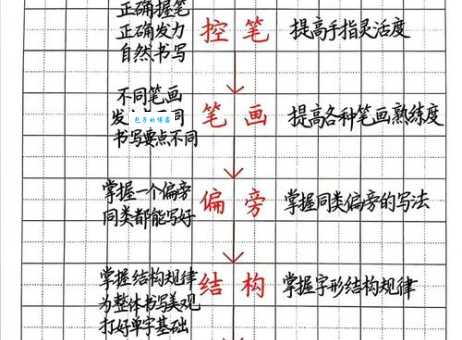 正确握笔
正确发力
自然书写
控笔
提高手指灵活度
不同笔画
发
同
书写要点不同
笔画
提高各种笔画熟练度
掌握一个偏旁
同类都能写好
偏旁
掌握同类偏旁的写法
掌握结构规律
为整体书写美观
打好单字基础
结构
掌握字形结构规律